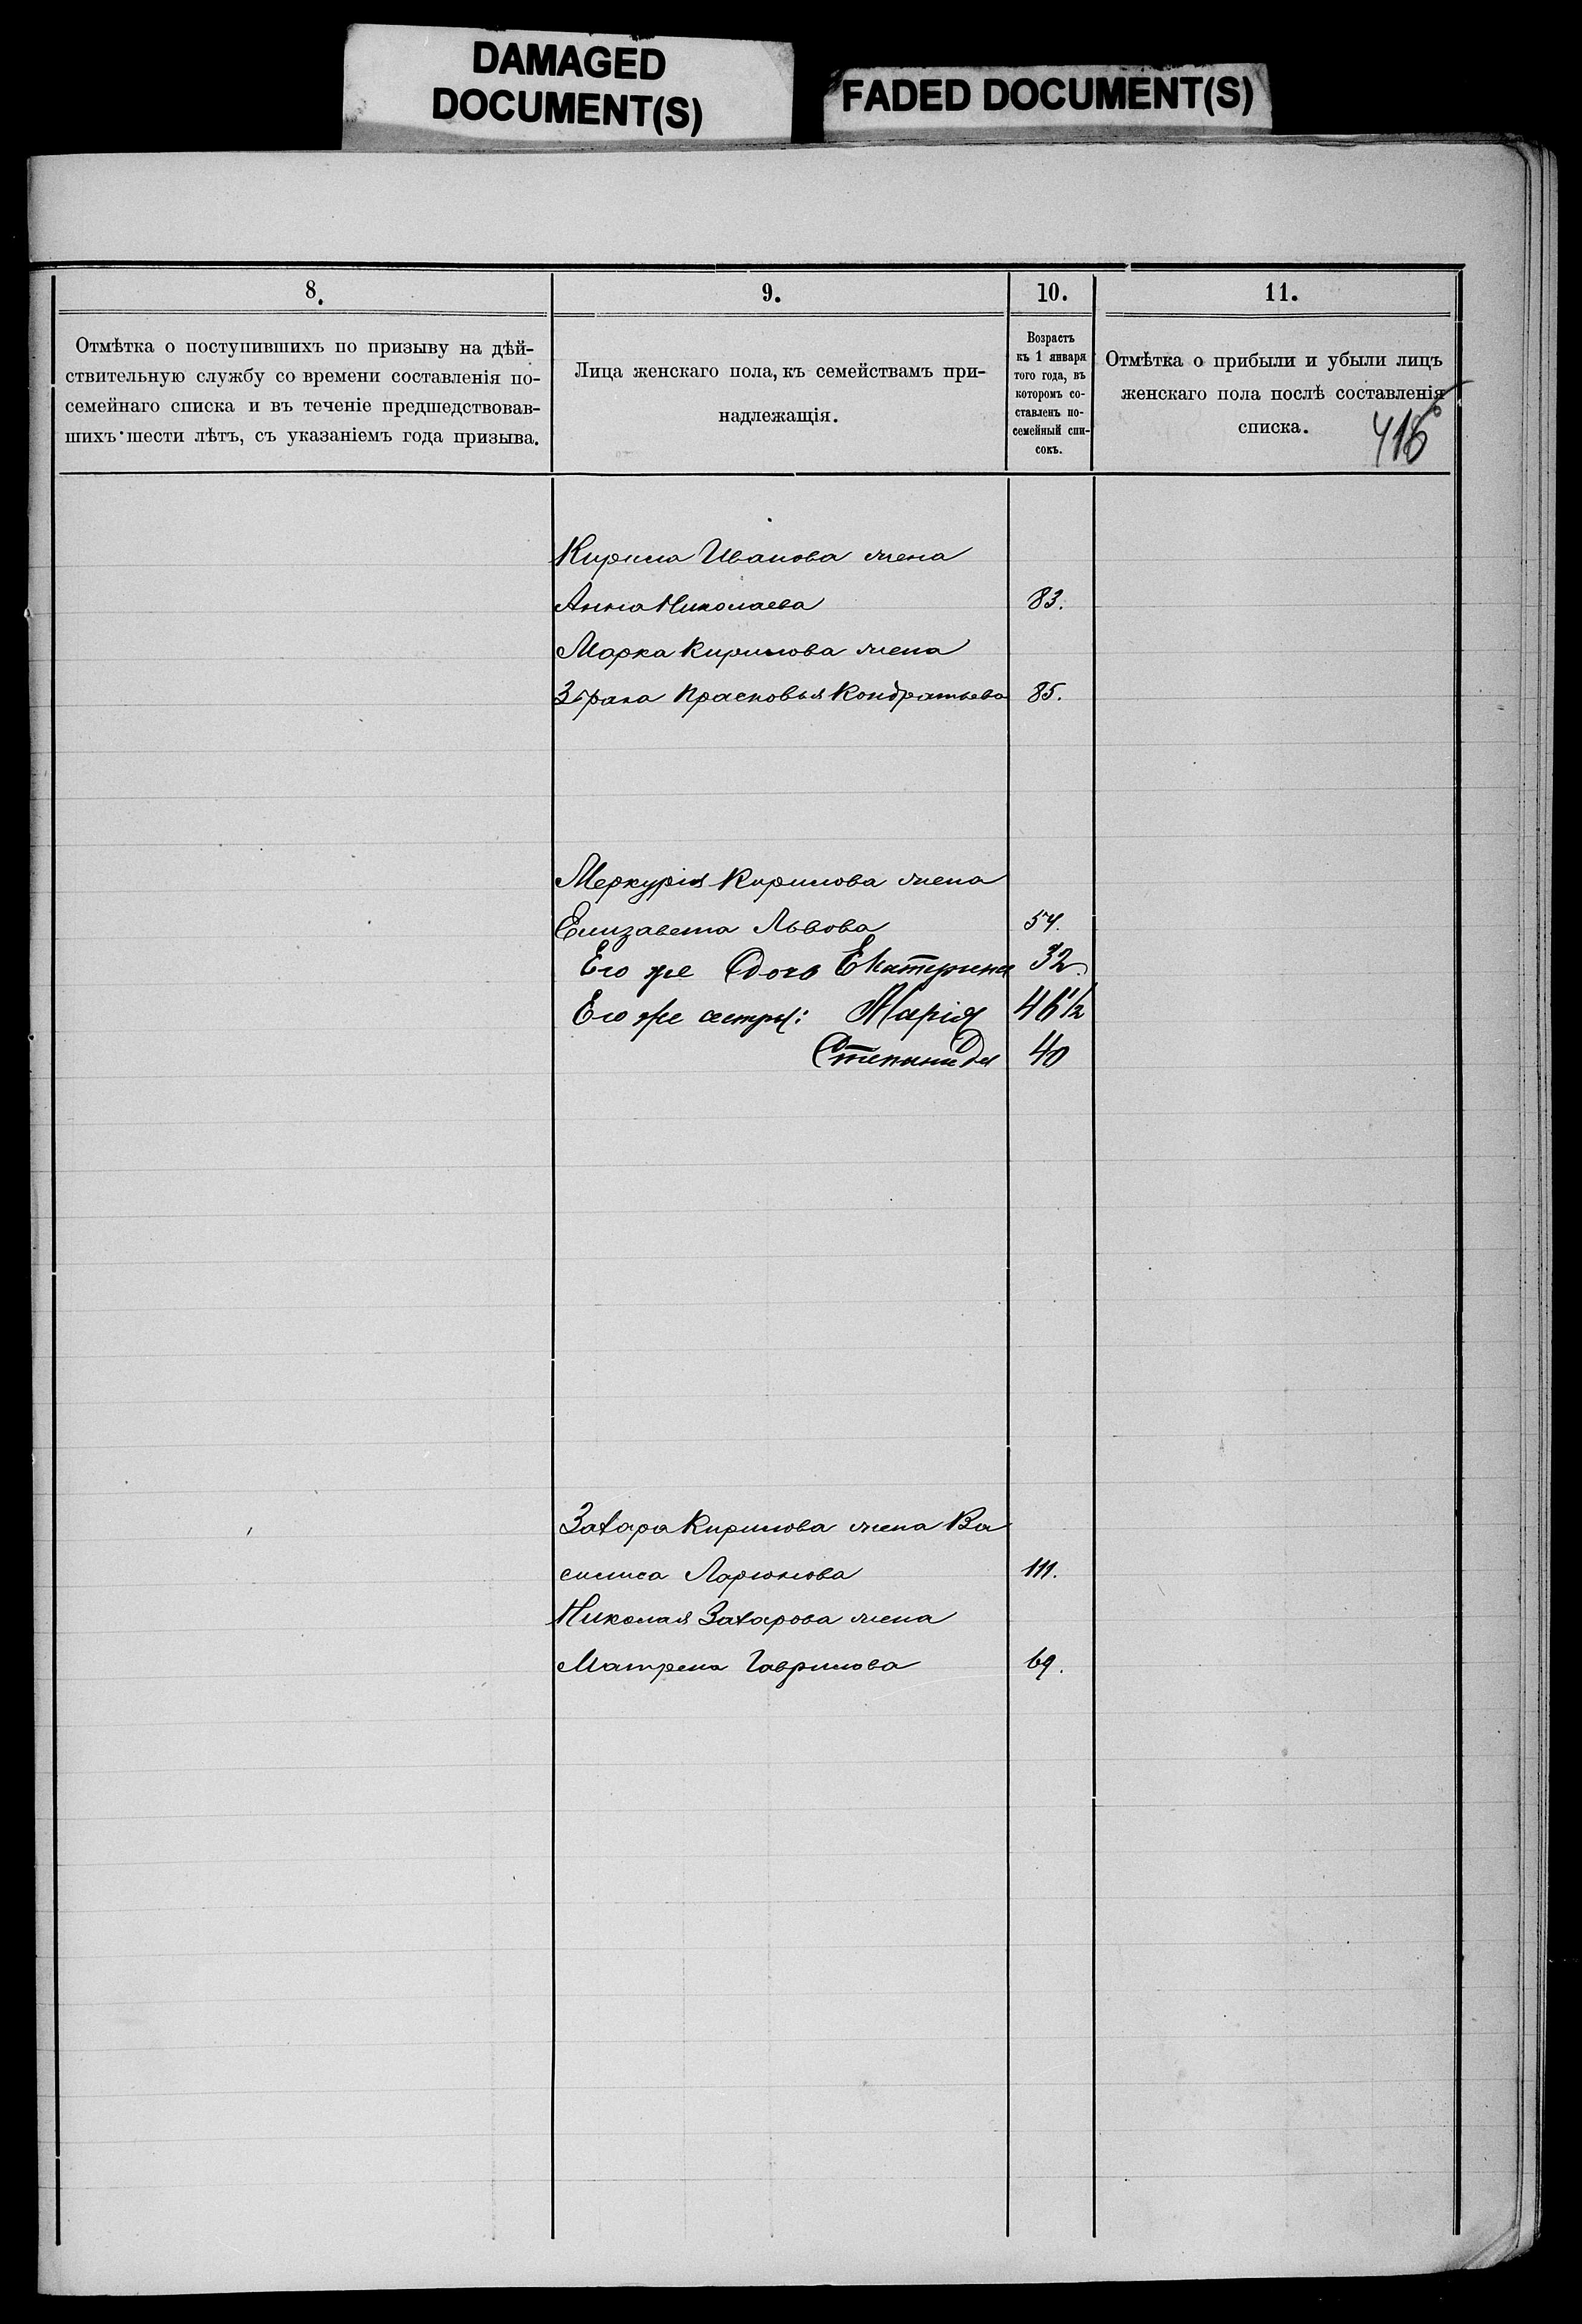 DAMAGED
DOCUMENT(S)
FADED DOCUMENT(S)
8.
Отмѣтка о поступившихъ по призыву на дѣй-
ствительную службу со времени составленія по-
семейнаго списка и въ теченіе предшедствовав-
шихъ шести лѣтъ, съ указаніемъ года призыва.
9.
Лица женскаго пола, къ семействамъ при-
надлежащія.
10.
Возрастъ
къ 1 января
того года, въ
которомъ со-
ставленъ по-
семейный спи-
сокъ.
11.
Отмѣтка о прибыли и убыли лицъ
женскаго пола послѣ составленія
списка.
Кирила Иванова жена
Анна Николаева 83.
Марка Кирилова жена
3 брака Прасковья Кондратьева 85.
Меркурія Кирилова жена
Елизавета Львова 54.
Его же дочь Екатерина 32.
Его же сестры: Марія 46 1/2
Степанида 40
Захара Кирилова жена Ва
силиса Ларионова 111.
Николая Захарова жена
Матрена Гаврилова 69.